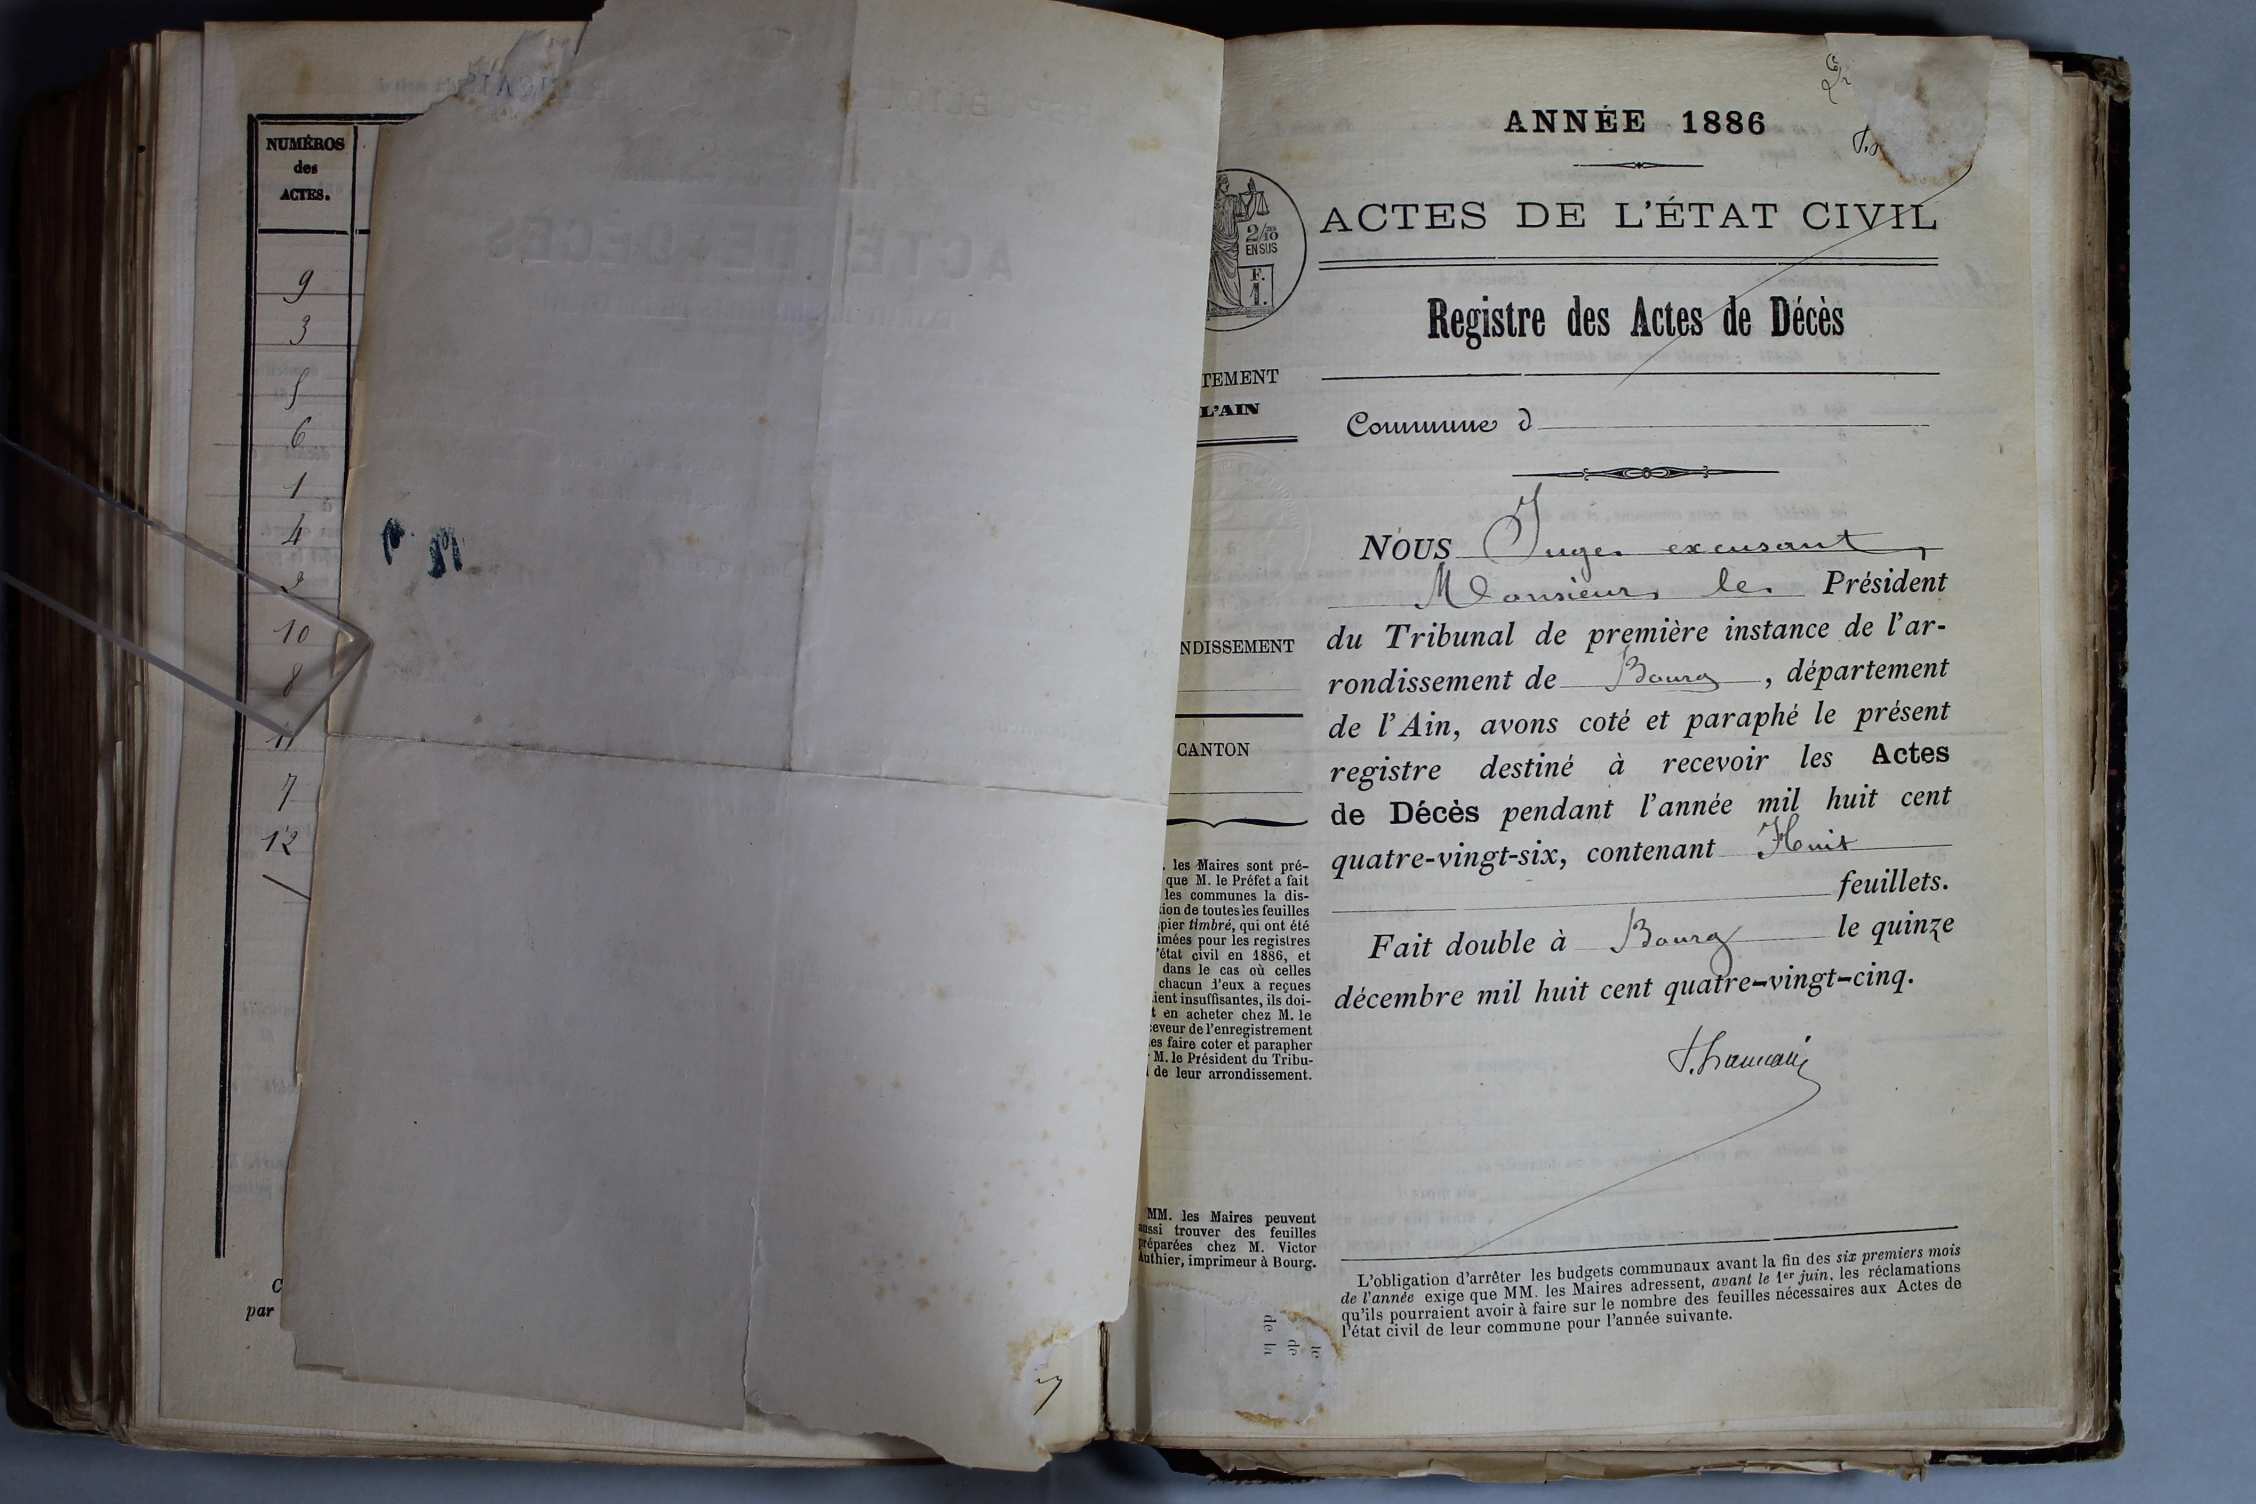 NUMÉROS
des
ACTES.
9
3
5
6
1
4
2
10
8
11
7
12
par
ANNÉE 1886
ACTES DE L'ÉTAT CIVIL
2/10
EN SUS
F.
1.
Registre des Actes de Décès
TEMENT
L'AIN
Commune d
NOUS Juge excusant,
Monsieur le Président
du Tribunal de première instance de l'ar-
rondissement de Bourg, département
de l'Ain, avons coté et paraphé le présent
registre destiné à recevoir les Actes
de Décès pendant l'année mil huit cent
quatre-vingt-six, contenant Huit
feuillets.
Fait double à Bourg le quinze
décembre mil huit cent quatre-vingt-cinq.
NDISSEMENT
CANTON
les Maires sont pré-
que M. le Préfet a fait
les communes la dis-
tion de toutes les feuilles
pier timbré, qui ont été
imées pour les registres
'état civil en 1886, et
dans le cas où celles
chacun d'eux a reçues
ient insuffisantes, ils doi-
t en acheter chez M. le
ceveur de l'enregistrement
es faire coter et parapher
M. le Président du Tribu-
de leur arrondissement.
MM. les Maires peuvent
aussi trouver des feuilles
préparées chez M. Victor
Authier, imprimeur à Bourg.
le
de
de la
L'obligation d'arrêter les budgets communaux avant la fin des six premiers mois
de l'année exige que MM. les Maires adressent, avant le 1er juin, les réclamations
qu'ils pourraient avoir à faire sur le nombre des feuilles nécessaires aux Actes de
l'état civil de leur commune pour l'année suivante.